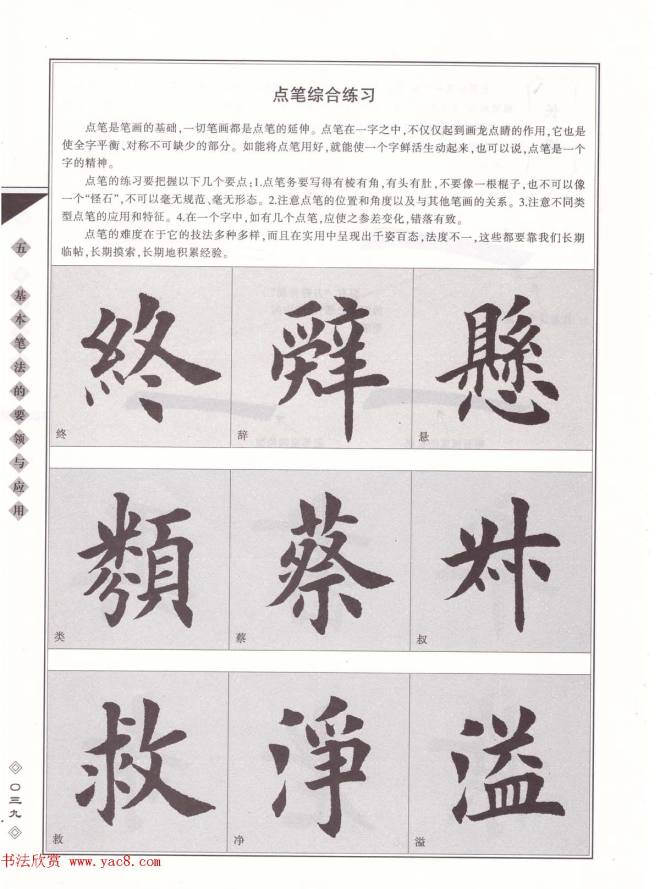 点笔综合练习
点笔是笔画的基础,一切笔画都是点笔的延伸。点笔在一字之中,不仅仅起到画龙点睛的作用,它也是
使全字平衡、对称不可缺少的部分。如能将点笔用好,就能使一个字鲜活生动起来,也可以说,点笔是一个
字的精神。
点笔的练习要把握以下几个要点:1.点笔务要写得有棱有角,有头有肚,不要像一根棍子,也不可以像
一个“怪石”,不可以毫无规范、毫无形态。2.注意点笔的位置和角度以及与其他笔画的关系。3.注意不同类
型点笔的应用和特征。4.在一个字中,如有几个点笔,应使之参差变化,错落有致。
点笔的难度在于它的技法多种多样,而且在实用中呈现出千姿百态,法度不一,这些都要靠我们长期
临帖,长期摸索,长期地积累经验。
五 基本笔法的要领与应用
終 辭 懸
终 辞 悬
類 蔡 叔
类 蔡 叔
救 淨 溢
救 净 溢
〇三九
书法欣赏 www.yac8.com